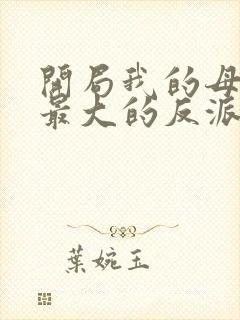 開局我的母
最大的反派
葉婉玉